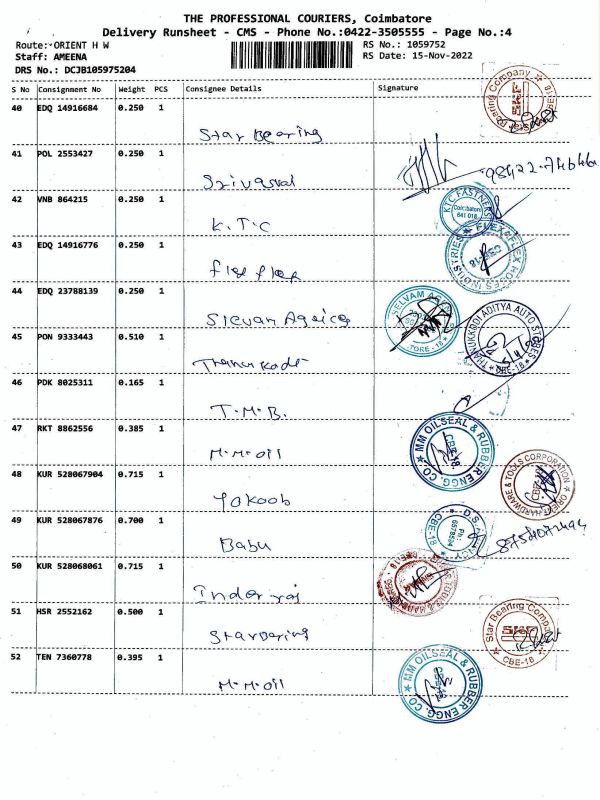 THE PROFESSIONAL COURIERS, Coimbatore
Delivery Runsheet - CMS - Phone No.:0422-3505555 - Page No.:4
Route:-ORIENT H W
RS No.: 1059752
Staff: AMEENA
RS Date: 15-Nov-2022
DRS No.: DCJB105975204
S No Consignment No Weight PCS Consignee Details Signature
40 EDQ 14916684 0.250 1
Star Bearing
41 POL 2553427 0.250 1
42 VNB 864215 0.250 1
KTC FASTNERS
Coimbatore
641 018
K.T.C
43 EDQ 14916776 0.250 1
FLEX FLEX HOSES INDUSTRIES
CBE-18
44 EDQ 23788139 0.250 1
SELVAM
45 PON 9333443 0.510 1
THANUKKODI ADITYA AUTO STORES
CBE-18
46 PDK 8025311 0.165 1
T.M.B.
47 RKT 8862556 0.385 1
MM OILSEAL & RUBBER ENGG. CO
CBE-18
M.M.oil
48 KUR 528067904 0.715 1
ORIENT HARDWARE & TOOLS CORPORATION
CBE
Yakoob
49 KUR 528067876 0.700 1
CBE-18
Babu
50 KUR 528068061 0.715 1
Inderraj
51 HSR 2552162 0.500 1
Star Bearing Company
SKF
CBE-18
Starbering
52 TEN 7360778 0.395 1
MM OILSEAL & RUBBER ENGG. CO
CBE-18
M.M.oil